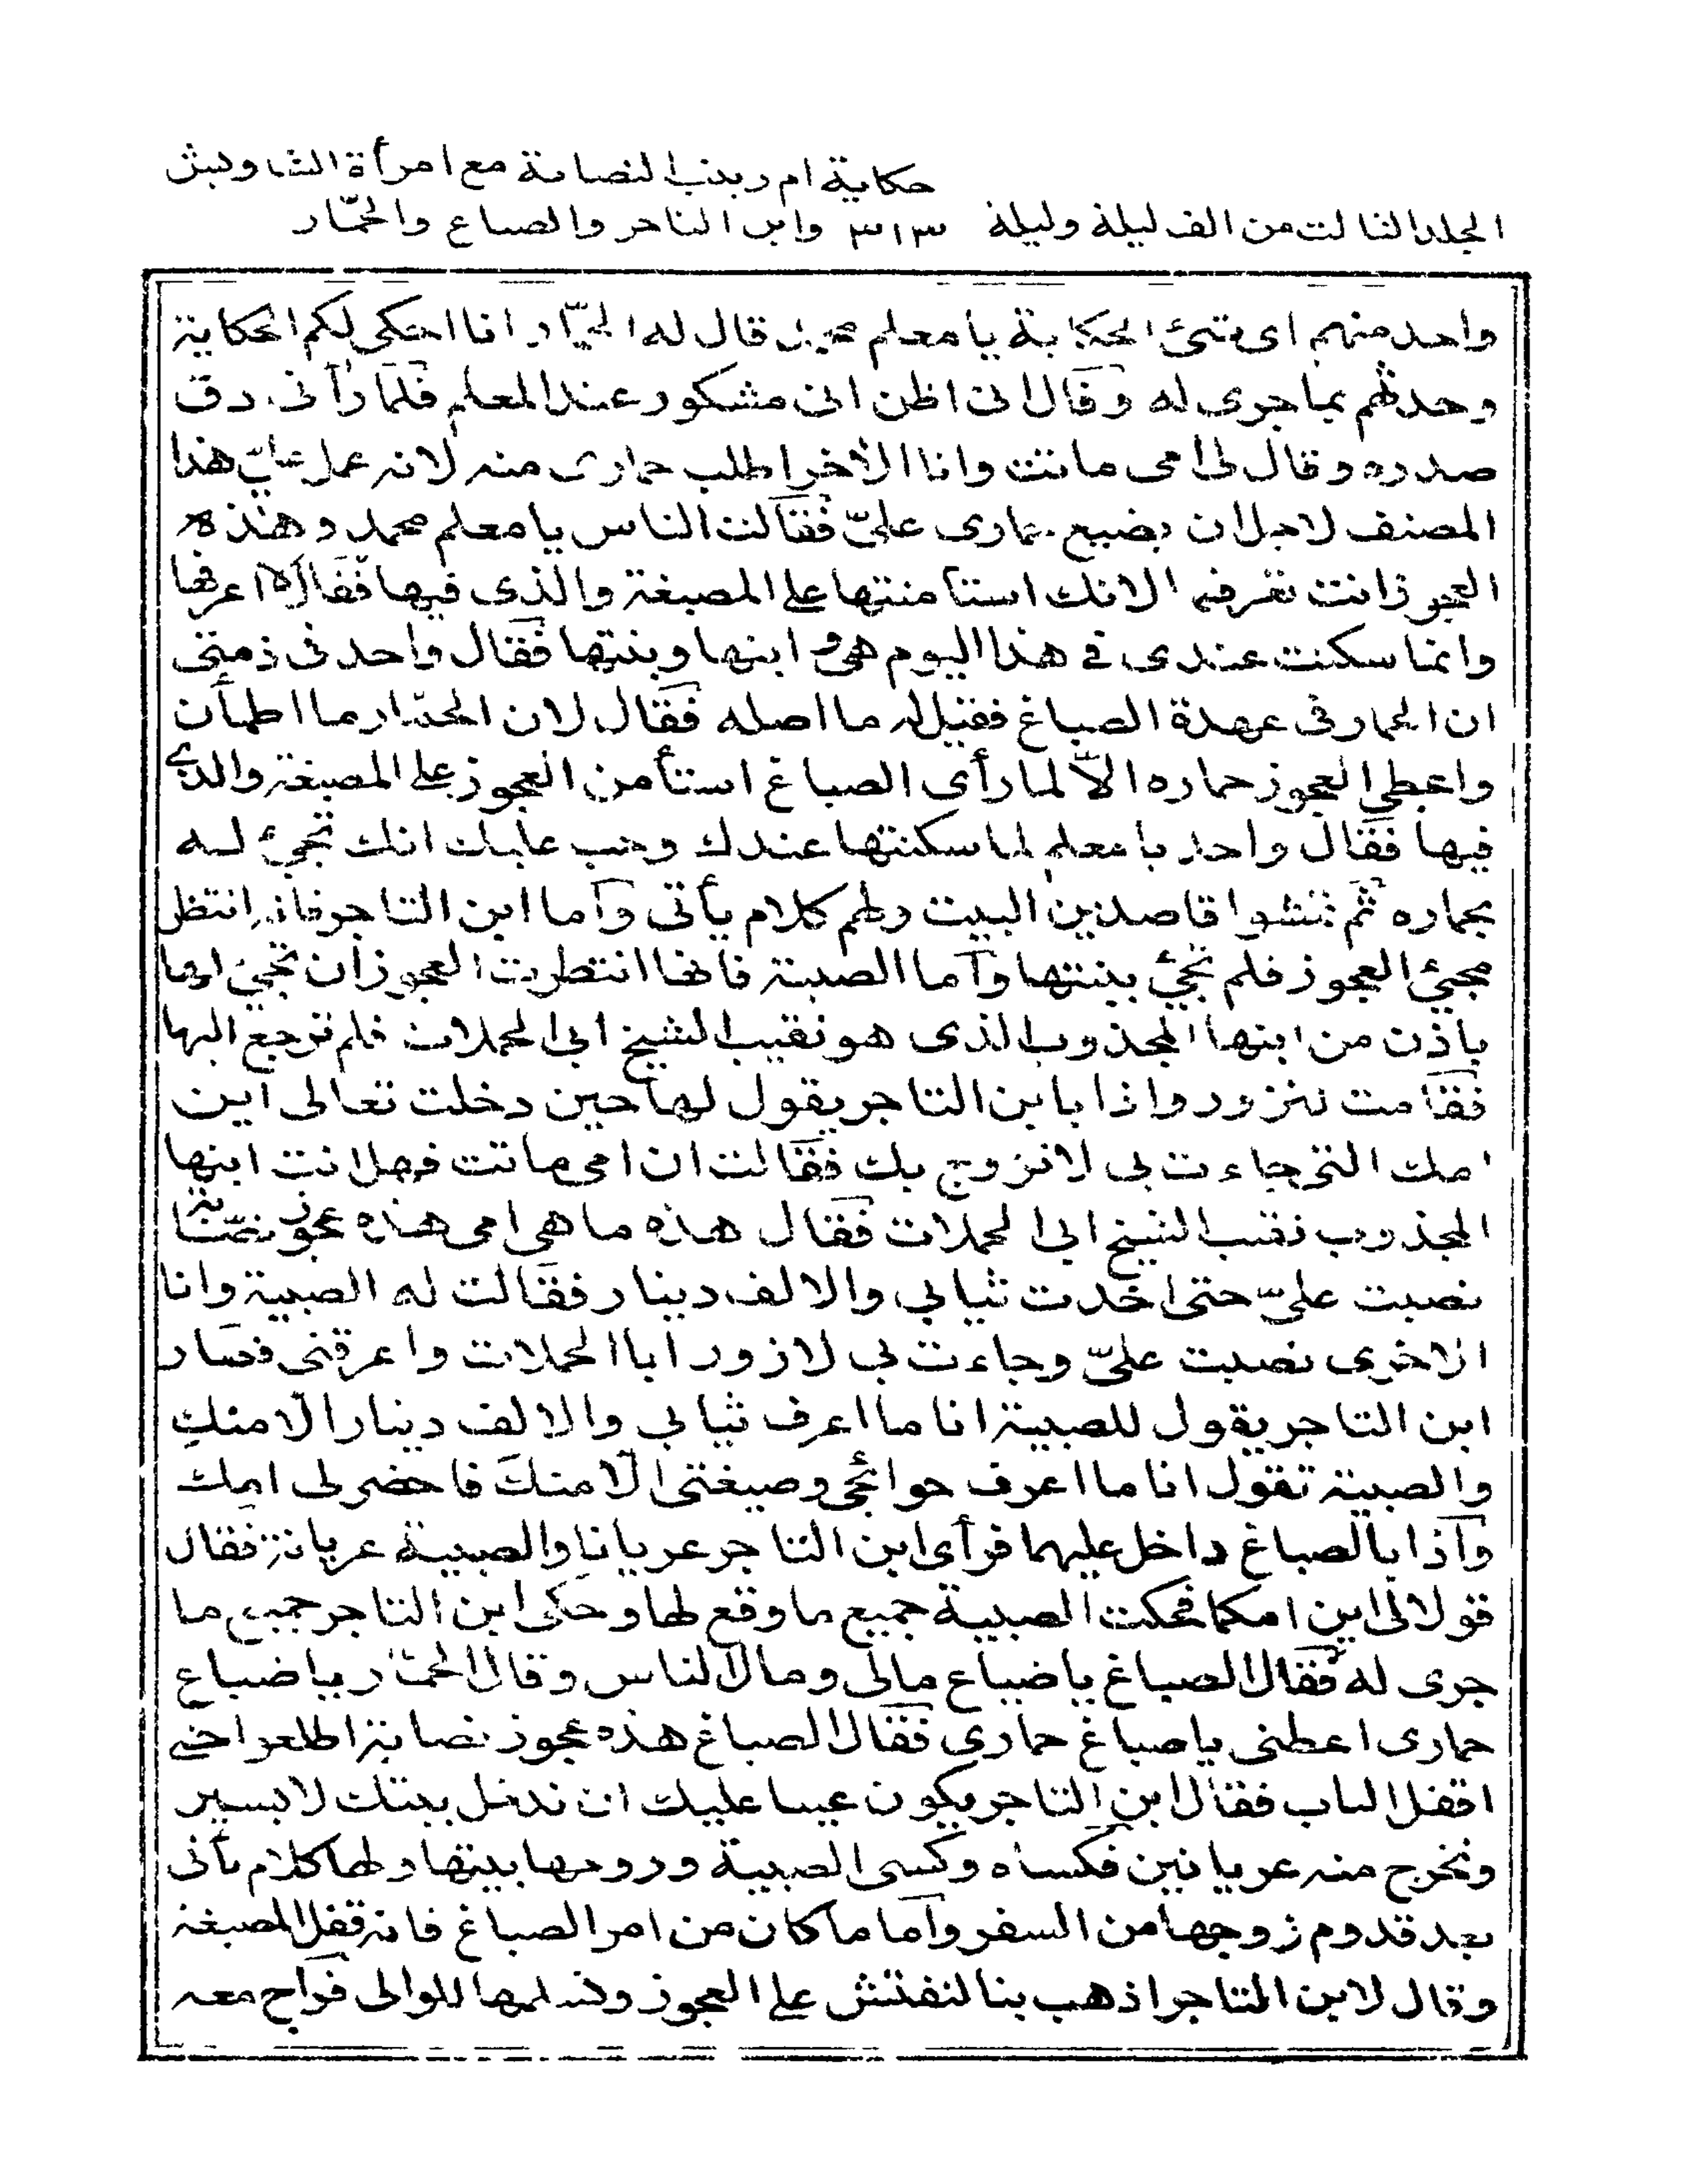 حكاية ام زينب النصابة مع امرأة الشاويش
المجلد الثالث من الف ليلة وليلة ٣١٣ وابن التاجر والصباغ والحمّار
واحد منهم اى شئ الحكاية يا معلم محمد قال له الحمّار انا احكى لكم الحكاية
وحدثهم بما جرى له وقال انى اظن انى مشكور عند المعلم فلما رآنى دق
صدره وقال لى امى ماتت وانا الآخر اطلب حمارى منه لانه عمل علىّ هذا
المصنف لاجل ان يضيع حمارى علىّ فقالت الناس يا معلم محمد وهذه
العجوز انت تعرفها لانك استأمنتها على المصبغة والذى فيها فقال لا اعرفها
وانما سكنت عندى فى هذا اليوم هى وابنها وبنتها فقال واحد فى ذمتى
ان الحمار فى عهدة الصباغ فقيل له ما اصله فقال لان الحمّار ما اطمأن
واعطى العجوز حماره الّا لما رأى الصباغ استأمن العجوز على المصبغة والذى
فيها فقال واحد يا معلم لما سكنتها عندك وجب عليك انك تجئ له
بحماره ثم تمشوا قاصدين البيت ولهم كلام يأتى وآما ابن التاجر فانه انتظر
مجئ العجوز فلم تجئ ببنتها وآما الصبية فانها انتظرت العجوز ان تجئ لها
باذن من ابنها المجذوب الذى هو نقيب الشيخ ابى الحملات فلم ترجع اليها
فقامت لتزور واذا بابن التاجر يقول لها حين دخلت تعالى اين
امك التى جاءت بى لاتزوج بك فقالت ان امى ماتت فهل انت ابنها
المجذوب نقيب الشيخ ابى الحملات فقال هذه ما هى امى هذه عجوز نصّابة
نصبت علىّ حتى اخذت ثيابى والالف دينار فقالت له الصبية وانا
الاخرى نصبت علىّ وجاءت بى لازور ابا الحملات واعرتنى فصار
ابن التاجر يقول للصبية انا ما اعرف ثيابى والالف دينار الّا منكِ
والصبية تقول انا ما اعرف حوائجى وصيغتى الّا منكَ فاحضر لى امك
وآذا بالصباغ داخل عليهما فرأى ابن التاجر عريانا والصبية عريانة فقال
قولا لى اين امكما فحكت الصبية جميع ما وقع لها وحكى ابن التاجر جميع ما
جرى له فقال الصباغ يا ضياع مالى ومال الناس وقال الحمّار يا ضياع
حمارى اعطنى يا صباغ حمارى فقال الصباغ هذه عجوز نصابة اطلعوا حتى
اقفل الباب فقال ابن التاجر يكون عيبا عليك ان ندخل بيتك لابسين
ونخرج منه عريانين فكساه وكسى الصبية وروحها بيتها ولها كلام يأتى
بعد قدوم زوجها من السفر وآما ما كان من امر الصباغ فانه قفل المصبغة
وقال لابن التاجر اذهب بنا لنفتش على العجوز ونسلمها للوالى فراح معه